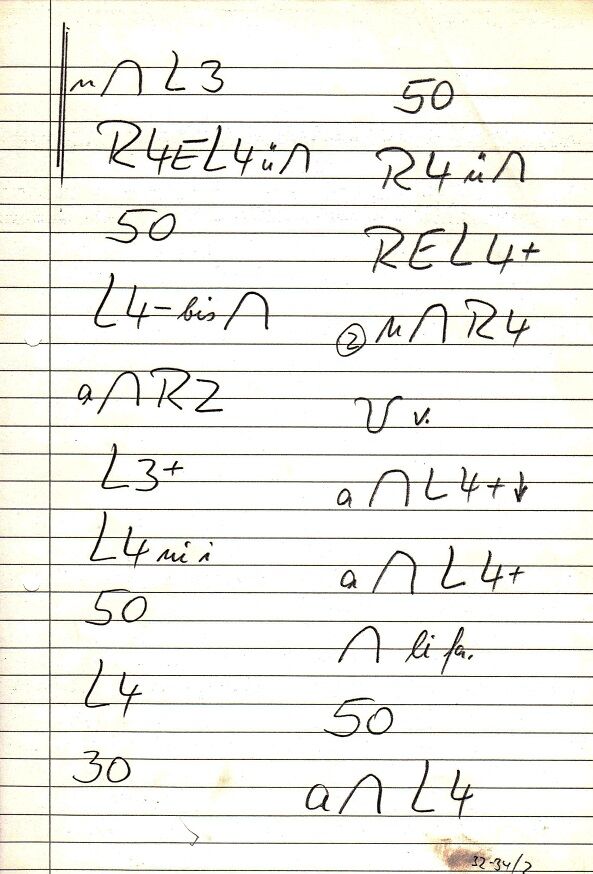 n∩ L3
R4EL4ü∩
50
L4-bis∩
a∩R2
L3+
L4 ni i
50
L4
30
50
R4ü∩
REL4+
② n∩R4
v.
a∩L4+↓
a∩L4+
∩ li fa.
50
a∩L4
32-34/2